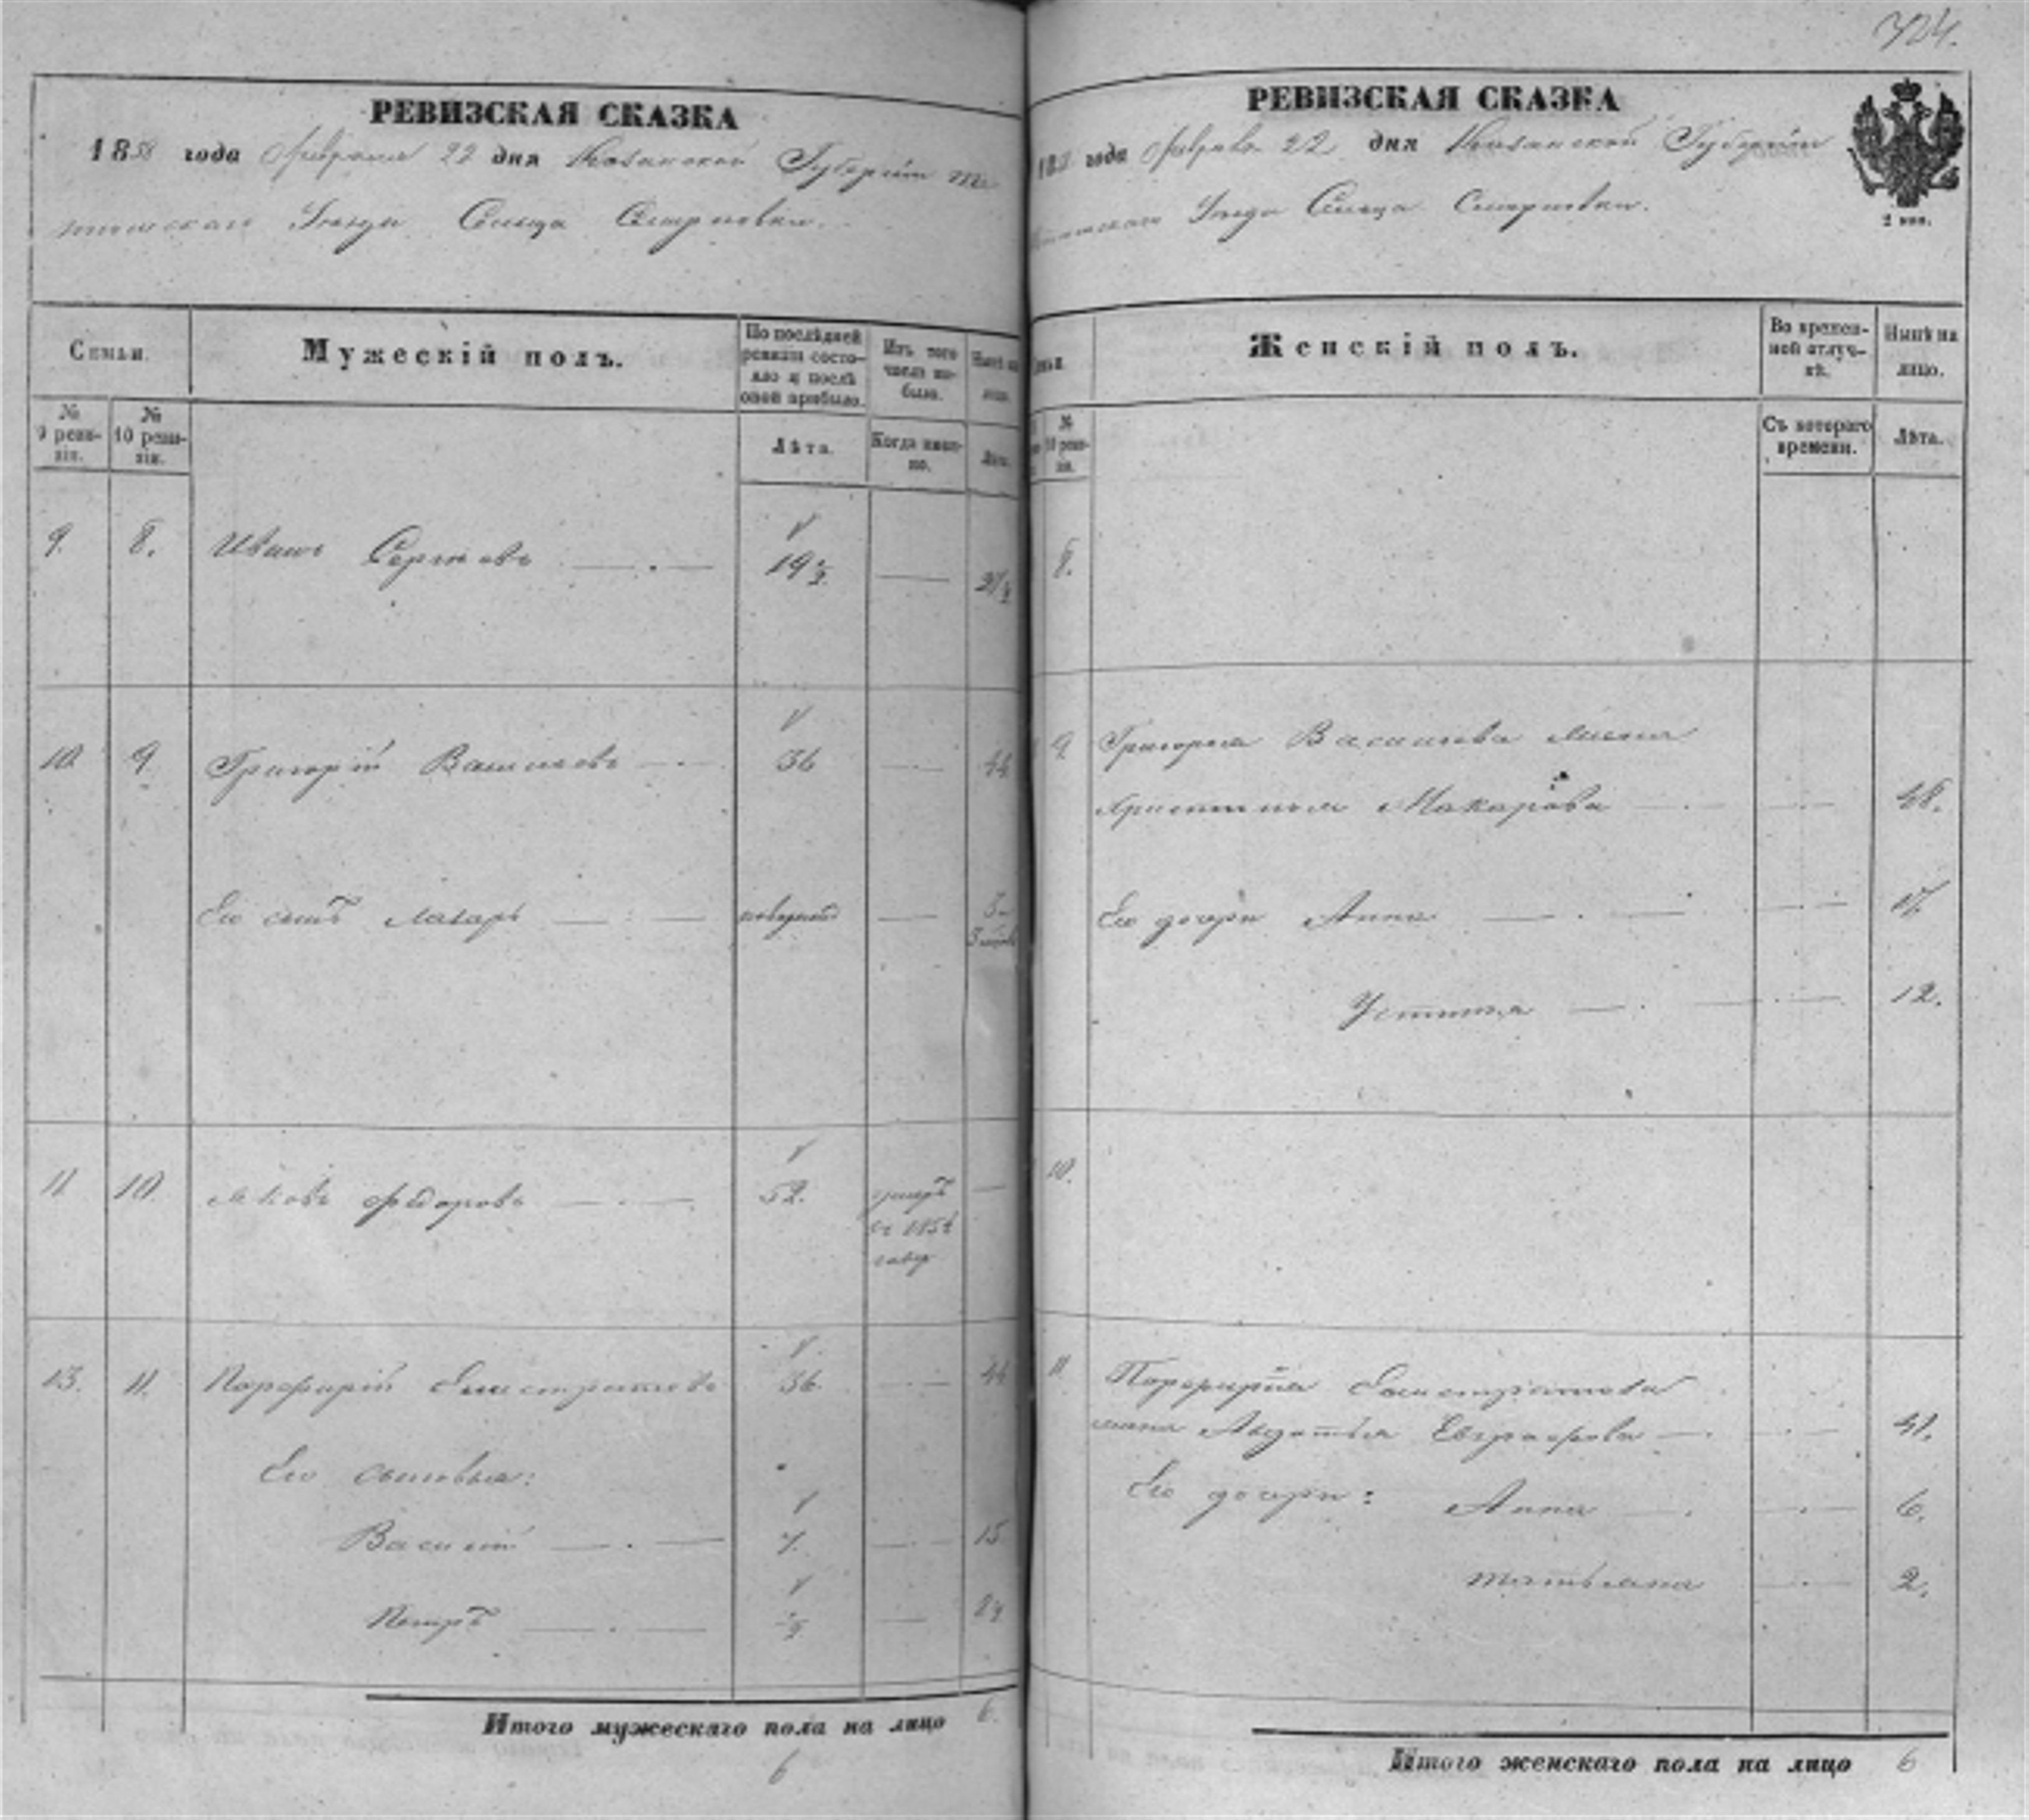 324.
РЕВИЗСКАЯ СКАЗКА
1858 года Февраля 22 дня Казанской Губернiи Те
тюшскаго Уѣзда Сельца
Семьи.
Мужескiй полъ.
По послѣдней ревизiи состояло и послѣ оной прибыло.
Изъ того числа выбыло.
Нынѣ на лицо.
№ 9 ревизiи.
№ 10 ревизiи.
Лѣта.
Когда именно.
Лѣта.
9. 8. Иванъ Сергѣевъ 19 ½
10. 9. Григорiй Васильевъ 36 44
Его сынъ Лазарь новорожд
11 10. Яковъ Федоровъ 52. умеръ
въ 185
году
13. 11. Порфирiй 36. 44
Его сыновья:
Василiй 7. 15
Петръ ½
Итого мужескаго пола на лицо 6.
6
РЕВИЗСКАЯ СКАЗКА
185 года Февраля 22 дня Казанской Губернiи
Уѣзда Сельца
2 коп.
Семьи.
Женскiй полъ.
Во временной отлучкѣ.
Нынѣ на лицо.
№ 10 ревизiи.
Съ котораго времени.
Лѣта.
8.
9 Григорья Васильева жена
Христинья Макарова 48.
Его дочери Анна 17.
Устинья 12.
10.
11 Порфирiя
жена Авдотья Евграфова 41.
Его дочери: Анна 6.
Татьяна 2.
Итого женскаго пола на лицо 6